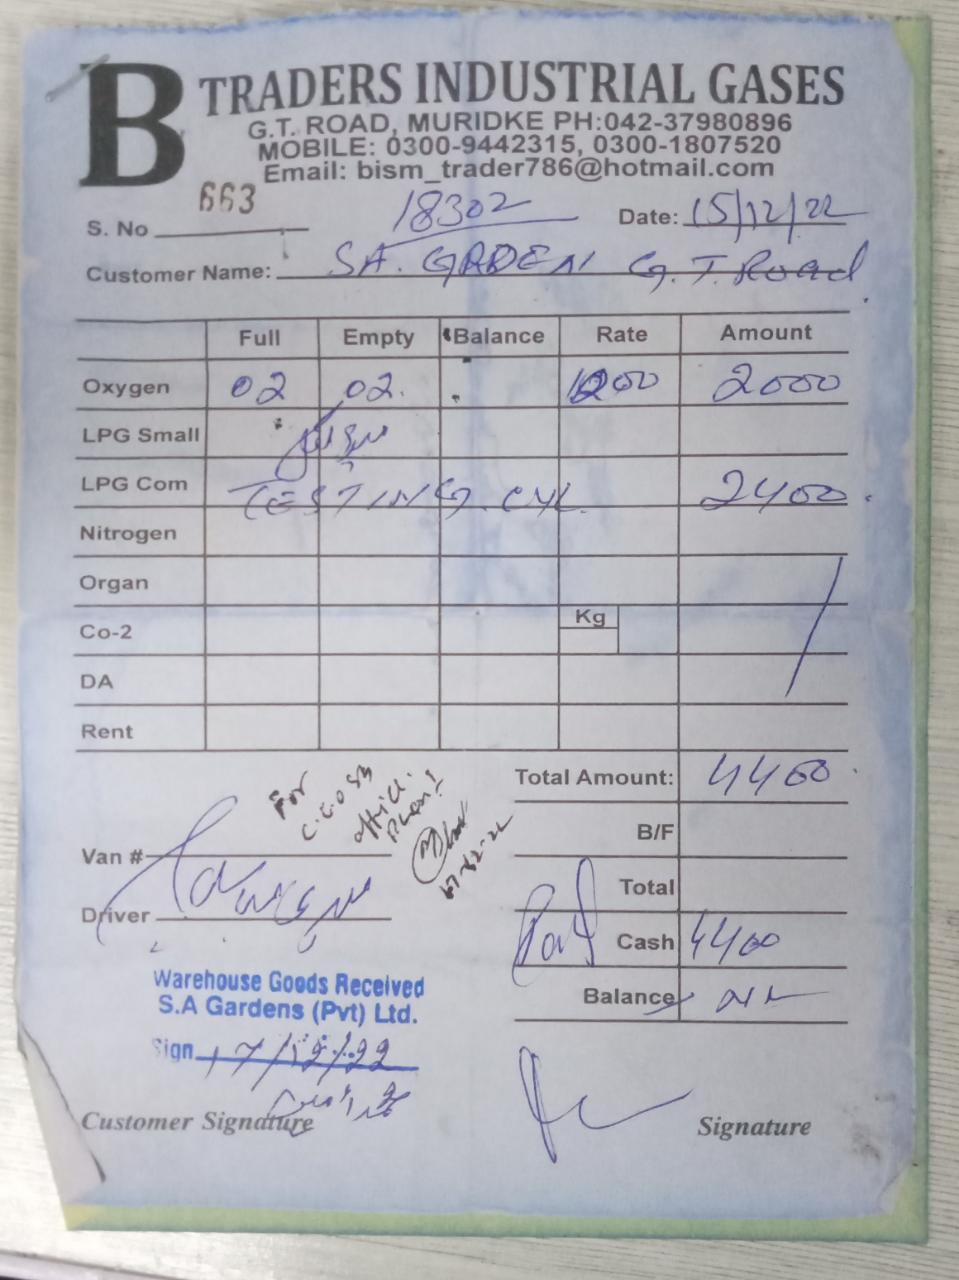 B TRADERS INDUSTRIAL GASES
G.T. ROAD, MURIDKE PH:042-37980896
MOBILE: 0300-9442315, 0300-1807520
Email: bism_trader786@hotmail.com
S. No 663 18302 Date: 15/12/22
Customer Name: SA. GARDEN G.T. Road
Full Empty Balance Rate Amount
Oxygen 02 02. 1000 2000
LPG Small
LPG Com TESTING. CYL 2400
Nitrogen
Organ
Co-2 Kg
DA
Rent
Total Amount: 4400
For
office
17-12-22
B/F
Van #
Total
Driver
Paid Cash 4400
Balance NIL
Warehouse Goods Received
S.A Gardens (Pvt) Ltd.
Sign 17/12/22
Customer Signature Signature